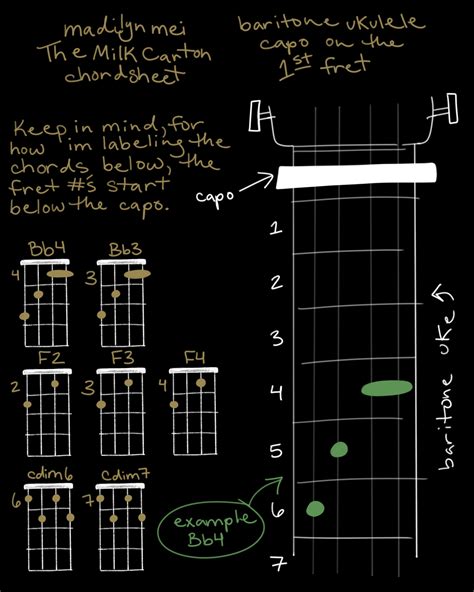 madilyn mei
The Milk Carton
chordsheet
baritone ukulele
capo on the
1st fret
Keep in mind, for
how im labeling the
chords below, the
fret #'s start
below the capo.
capo
Bb4
4
Bb3
3
F2
2
F3
3
F4
4
cdim6
6
Cdim7
7
1
2
3
4
5
6
7
baritone uke
example
Bb4